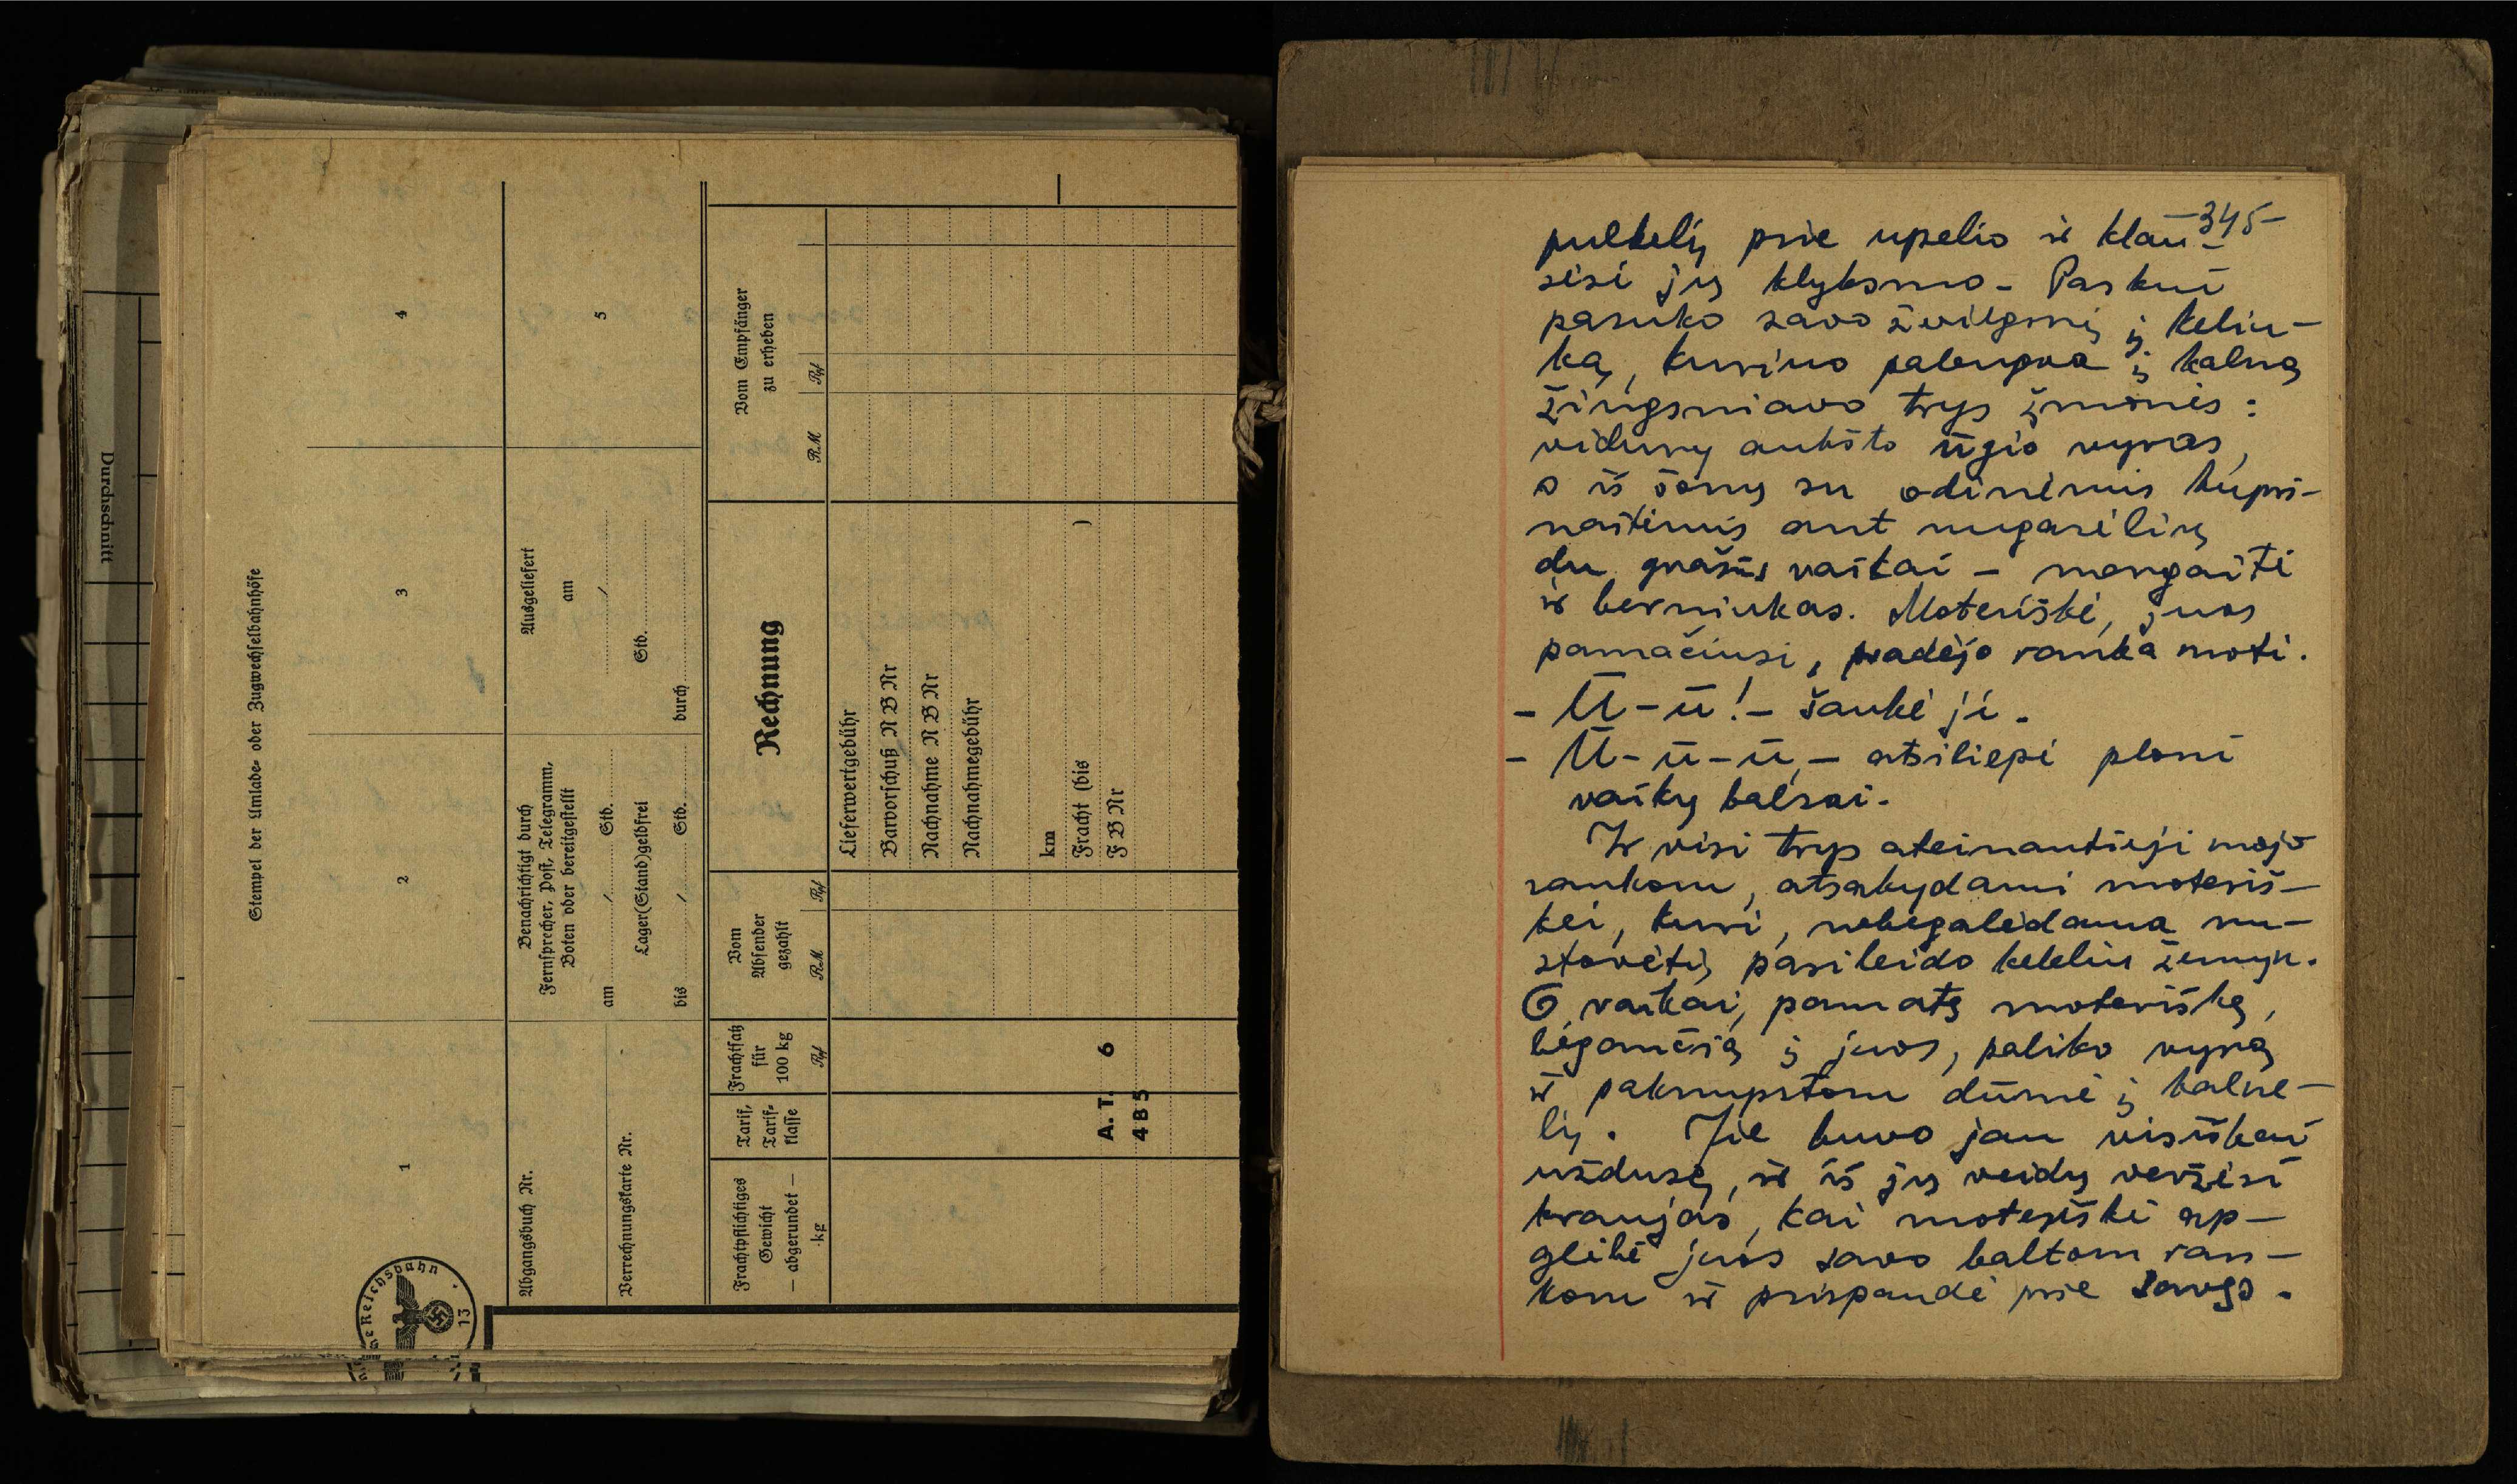 Durchschnitt
Stempel der Umlade- oder Zugwechselbahnhöfe
1
2
3
4
Abgangsbuch Nr.
Verrechnungskarte Nr.
Benachrichtigt durch
Fernsprecher, Post, Telegramm,
Boten oder bereitgestellt
am / Std.
Lager(Stand)geldfrei
bis / Std.
Ausgeliefert
am
/
Std.
durch
5
Frachtpflichtiges
Gewicht
— abgerundet —
kg
Tarif,
Tarif-
klasse
Frachtsatz
für
100 kg
Rpf
Vom
Absender
gezahlt
RM Rpf
Rechnung
Vom Empfänger
zu erheben
RM Rpf
Liefe​rwertgebühr
Barvorschuß N B Nr
Nachnahme N B Nr
Nachnahmegebühr
km
Fracht (bis )
F B Nr
A. T. 6
485
Reichsbahn
13
-345-
pulkelį prie upelio ir klau-
sėsi jų klyksmo. Paskui
pasuko savo žvilgsnį į keliu-
ką, kuriuo palengva į kalną
žingsniavo trys žmonės:
vidury aukšto ūgio vyras,
o iš šonų su odinėmis kupri-
naitėmis ant nugarėlių
du gražūs vaikai – mergaitė
ir berniukas. Moteriškė, juos
pamačiusi, pradėjo ranka moti.
– Ū-ū! – šaukė ji.
– Ū-ū-ū, – atsiliepė ploni
vaikų balsai.
Ir visi trys ateinantieji mojo
rankom, atsakydami moteriš-
kei, kuri, nebegalėdama nu-
stovėti, pasileido keleliu žemyn.
O vaikai, pamatę moteriškę,
bėgančią į juos, paliko vyrą
ir pakrūpstom dūmė į kalne-
lį. Jie buvo jau visiškai
uždusę, ir iš jų veidų veržėsi
kraujas, kai moteriškė ap-
glėbė juos savo baltom ran-
kom ir prispaudė prie savęs.